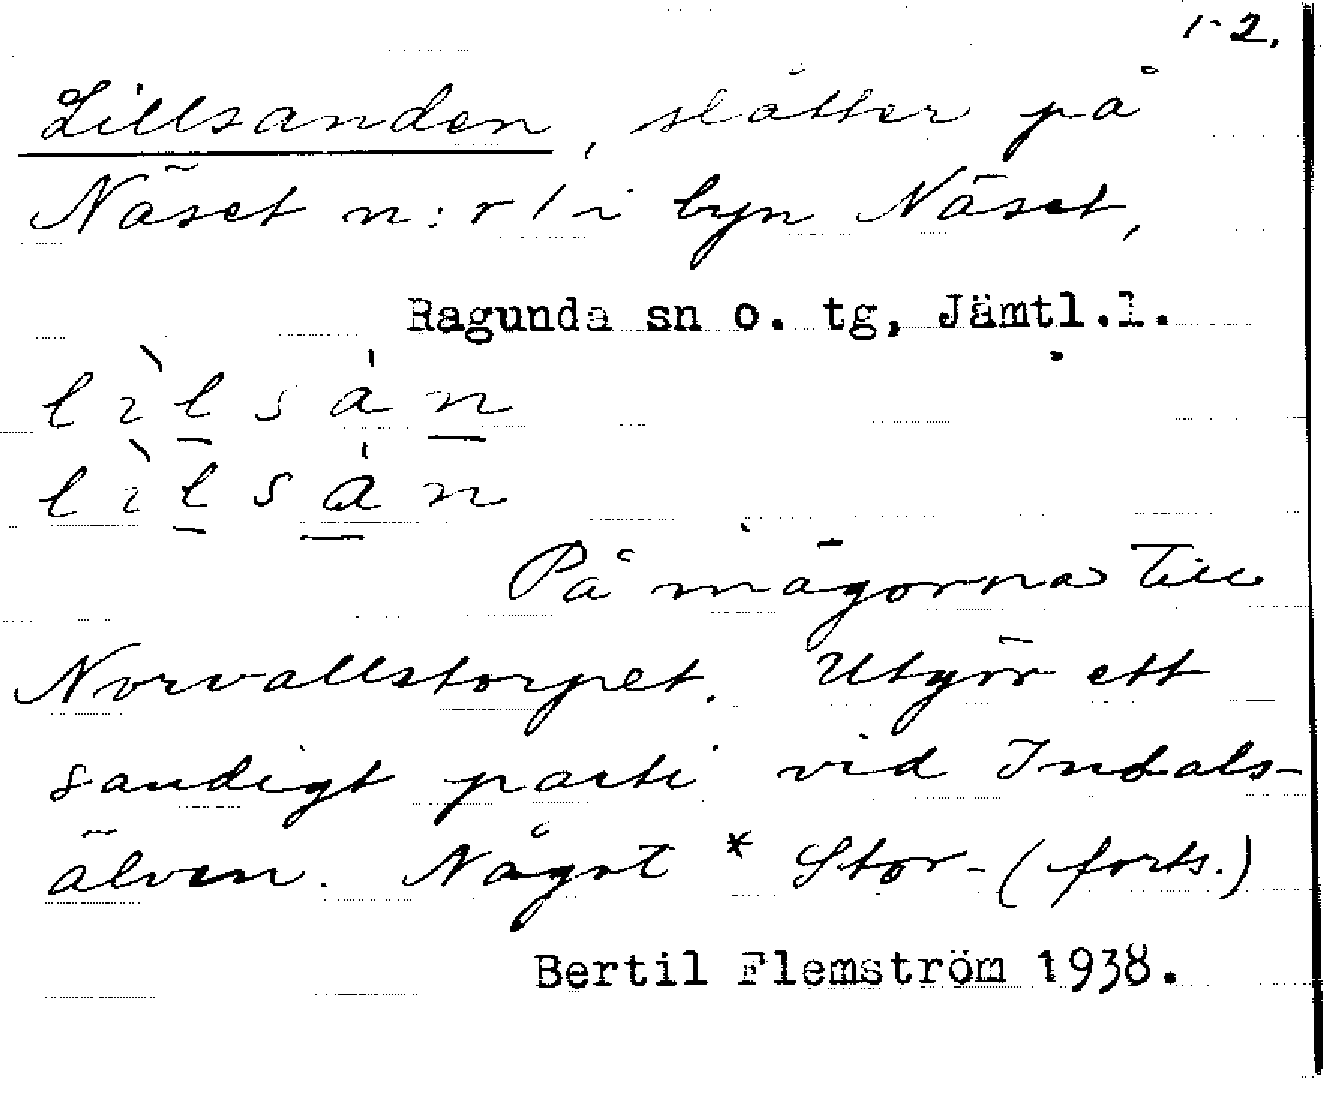 1-2.
Lillsanden, slåtter på
Näset n:r 1 i byn Näset,
Ragunda sn o. tg, Jämtl.l.
lìlsán
lìlsán
På mågorna till
Norvallstorpet. Utgör ett
sandigt parti vid Indals-
älven. Något * Stor- (forts.)
Bertil Flemström 1938.